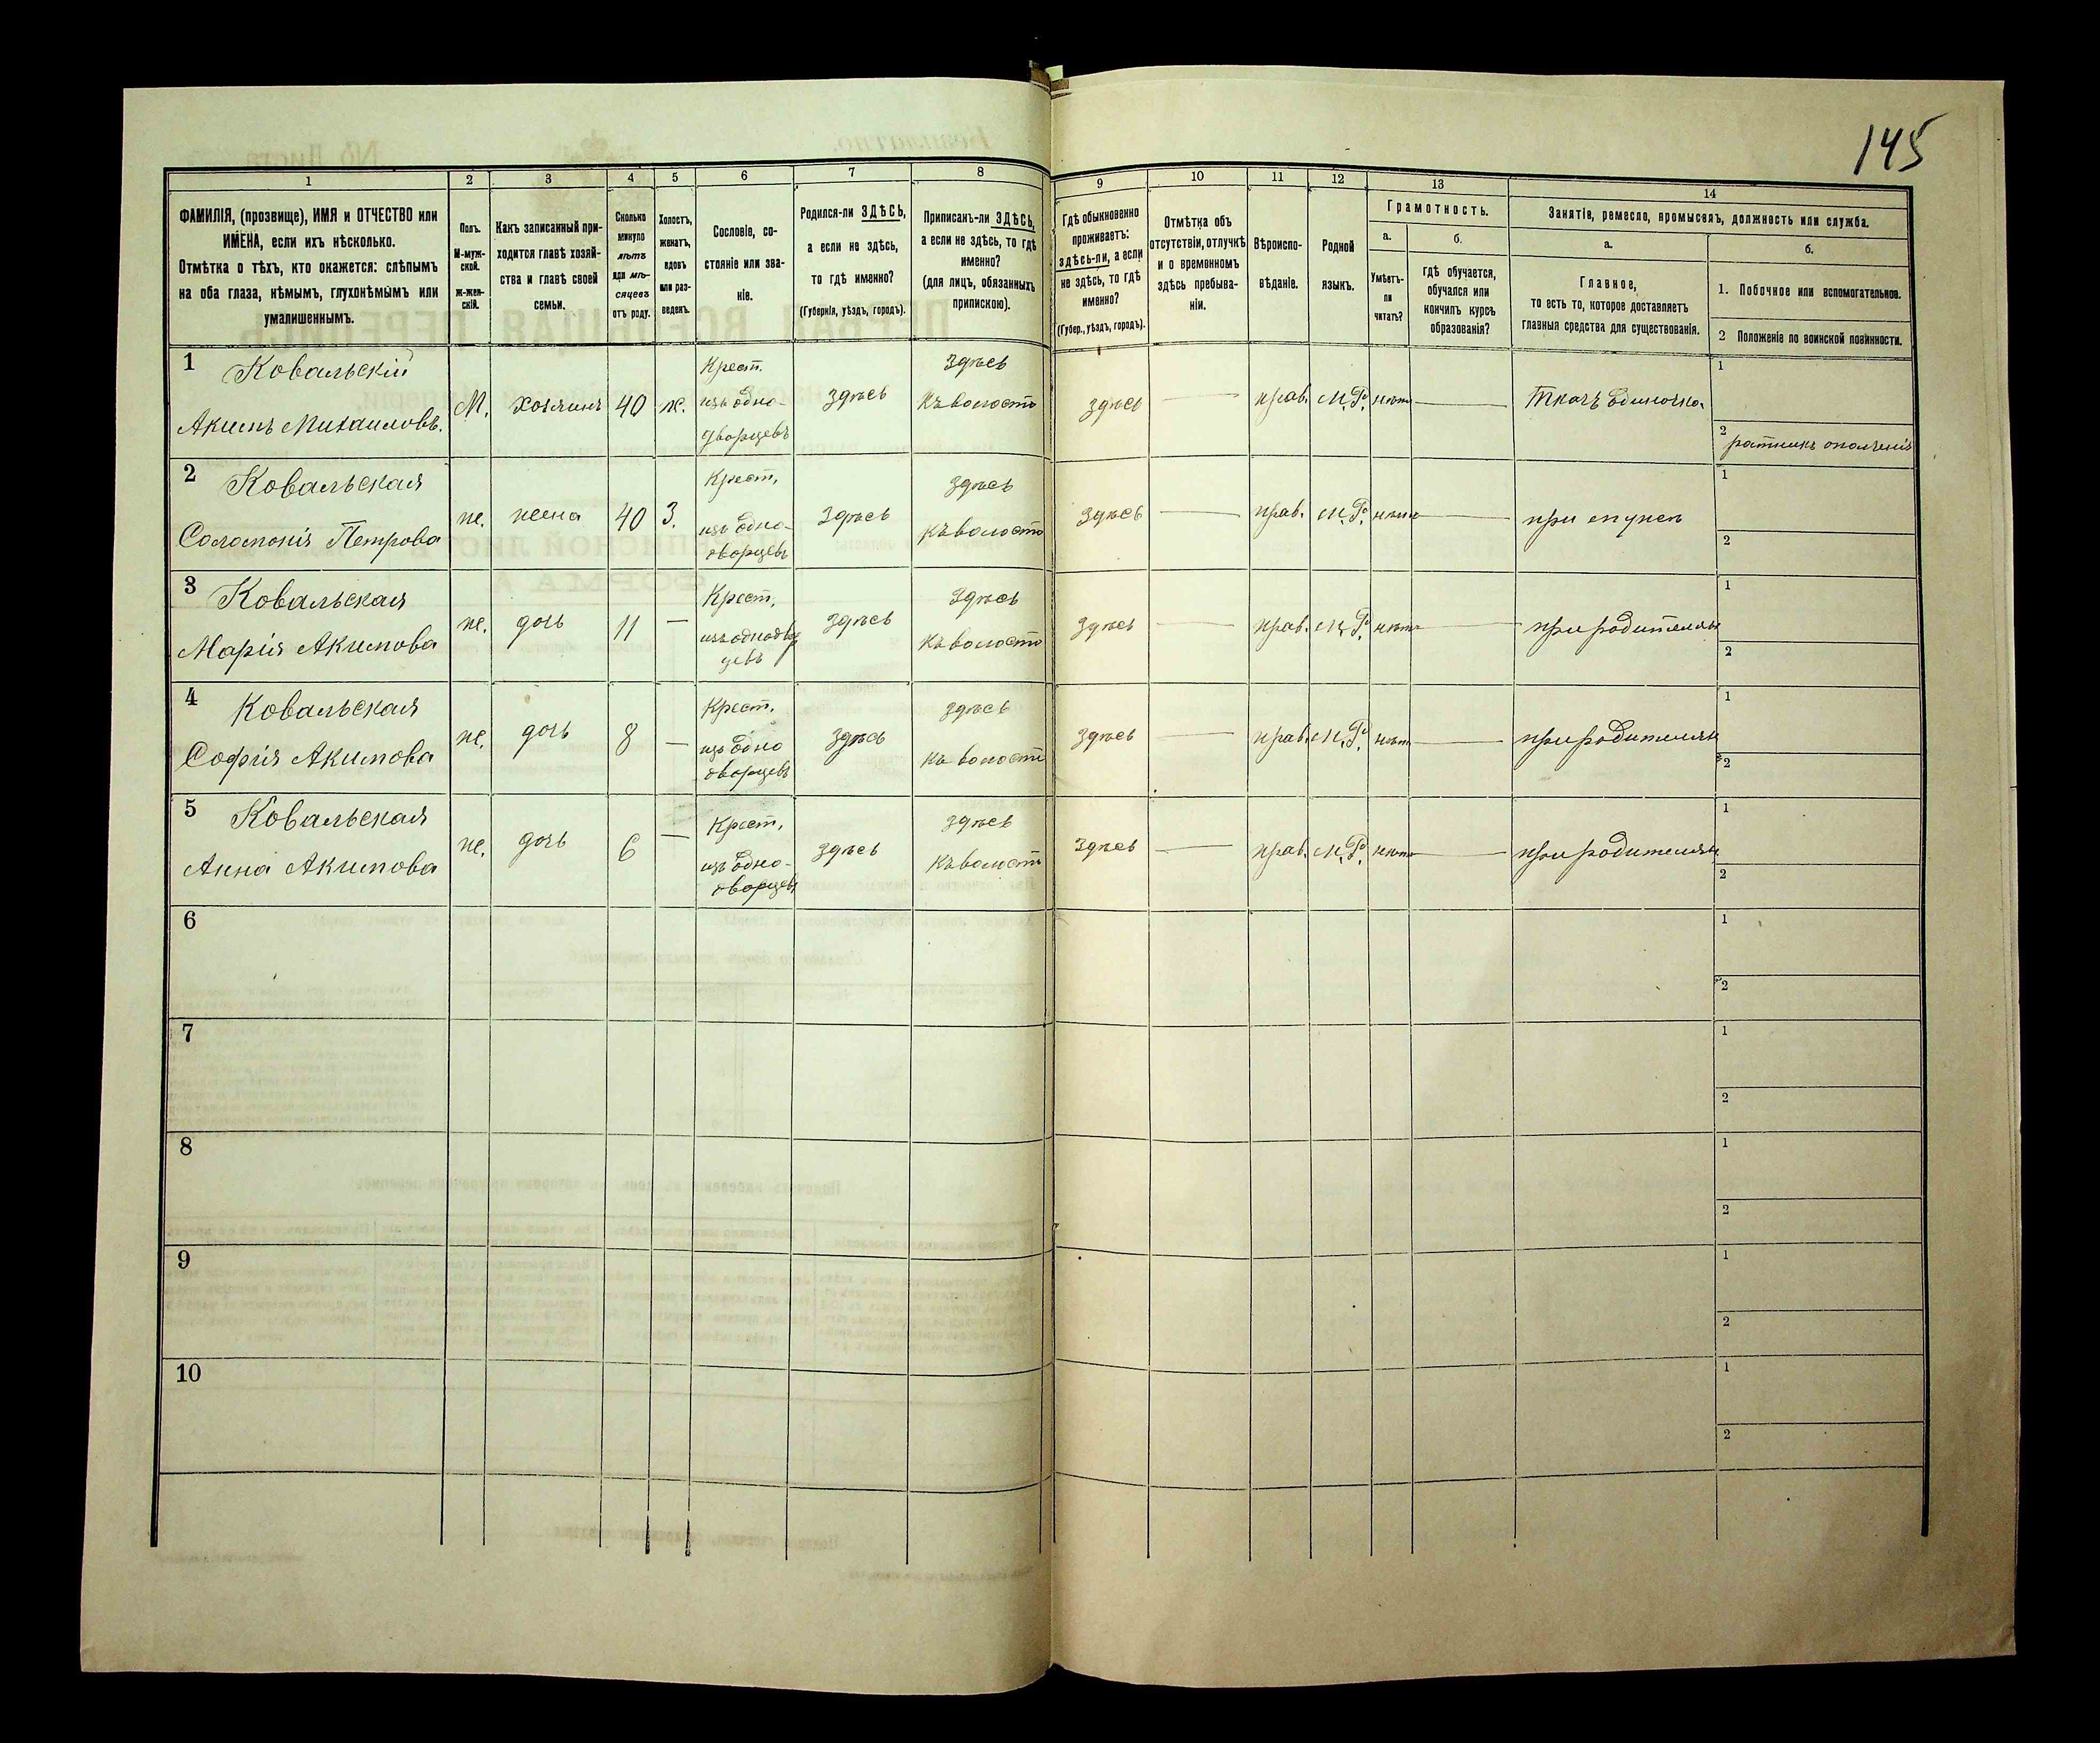 145
1 2 3 4 5 6 7 8 9 10 11 12 13 14
ФАМИЛІЯ, (прозвище), ИМЯ и ОТЧЕСТВО или
ИМЕНА, если ихъ нѣсколько.
Отмѣтка о тѣхъ, кто окажется: слѣпымъ
на оба глаза, нѣмымъ, глухонѣмымъ или
умалишеннымъ.
Полъ.
М-муж-
ской.
ж-жен-
скій.
Какъ записанный при-
ходится главѣ хозяй-
ства и главѣ своей
семьи.
Сколько
минуло
лѣтъ
или мѣ-
сяцевъ
отъ роду.
Холостъ,
женатъ,
вдовъ
или раз-
веденъ.
Сословіе, со-
стояніе или зва-
ніе.
Родился-ли ЗДѢСЬ,
а если не здѣсь,
то гдѣ именно?
(Губернія, уѣздъ, городъ).
Приписанъ-ли ЗДѢСЬ,
а если не здѣсь, то гдѣ
именно?
(для лицъ, обязанныхъ
припискою).
Гдѣ обыкновенно
проживаетъ:
здѣсь-ли, а если
не здѣсь, то гдѣ
именно?
(Губер., уѣздъ, городъ).
Отмѣтка объ
отсутствіи, отлучкѣ
и о временномъ
здѣсь пребыва-
ніи.
Вѣроиспо-
вѣданіе.
Родной
языкъ.
Грамотность.
а.
Умѣетъ-
ли
читать?
б.
гдѣ обучается,
обучался или
кончилъ курсъ
образованія?
Занятіе, ремесло, промыселъ, должность или служба.
а.
Главное,
то есть то, которое доставляетъ
главныя средства для существованія.
б.
1. Побочное или вспомогательное.
2 Положеніе по воинской повинности.
1 Ковальскій
Акимъ Михаиловъ.
М.
хозяинъ
40
ж.
Крест.
изъ одно-
дворцевъ
здѣсь
Здѣсь
къ волости
здѣсь
—
прав.
М.Р.
нѣтъ
—
Ткачъ одиночка
1
2 ратникъ ополченія
2 Ковальская
Соломонія Петрова
же.
жена
40
З.
Крест,
изъ одно-
дворцевъ
Здѣсь
здѣсь
къ волости
Здѣсь
—
прав.
М.Р.
нѣтъ
—
при мужѣ
1
2
3 Ковальская
Марія Акимова
же.
дочь
11
—
Крест,
изъ однодвор
цевъ
здѣсь
Здѣсь
къ волости
здѣсь
—
прав.
М.Р.
нѣтъ
—
при родителяхъ
1
2
4 Ковальская
Софія Акимова
же.
дочь
8
—
Крест,
изъ одно
дворцевъ
Здѣсь
здѣсь
къ волости
здѣсь
—
прав.
М.Р.
нѣтъ
—
при родителяхъ
1
2
5 Ковальская
Анна Акимова
же.
дочь
6
—
Крест,
изъ одно-
дворцевъ
здѣсь
здѣсь
къ волости
Здѣсь
—
прав.
М.Р.
нѣтъ
—
при родителяхъ
1
2
6
1
2
7
1
2
8
1
2
9
1
2
10
1
2